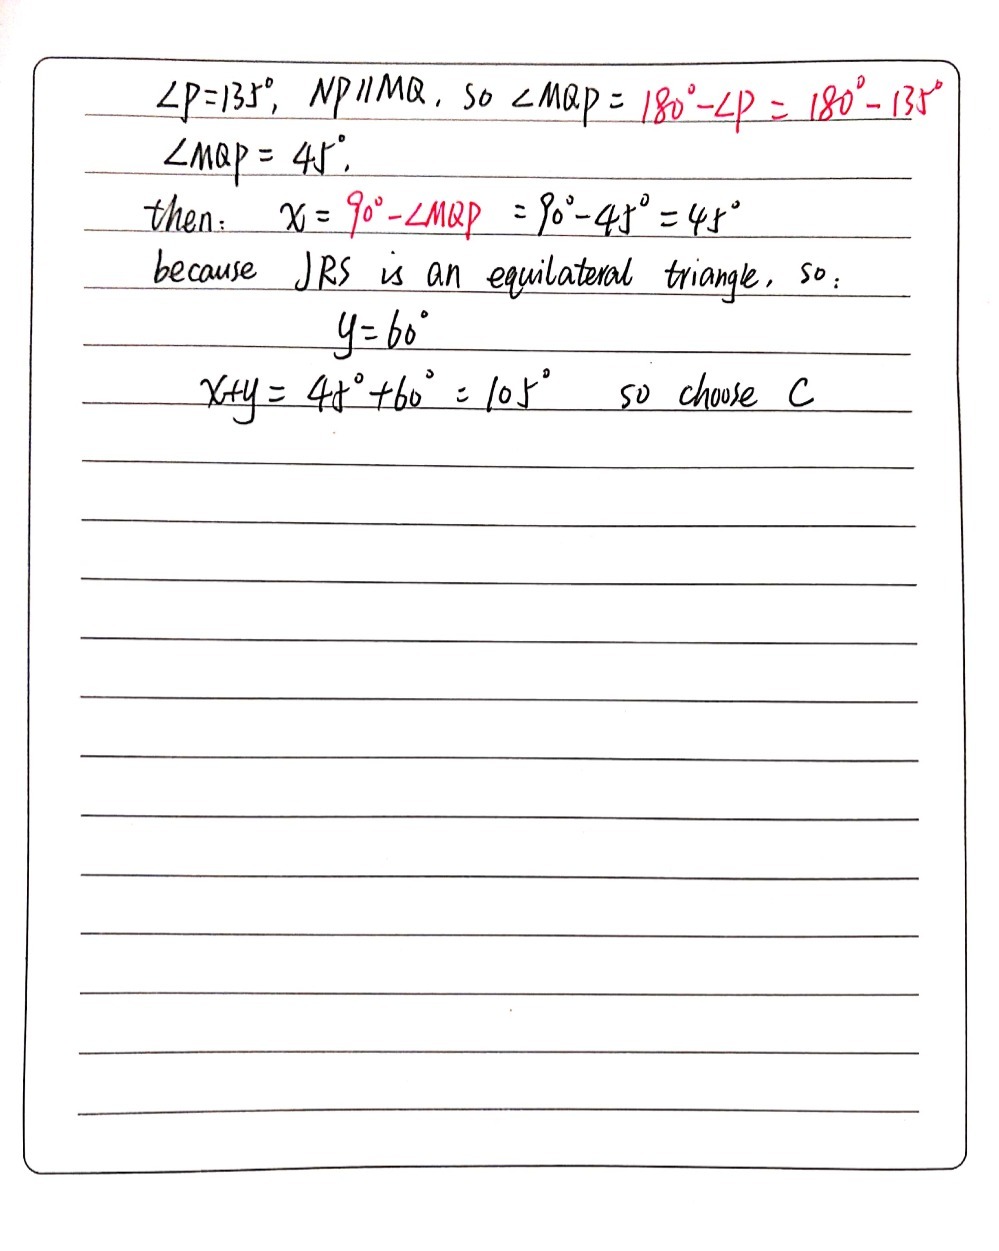 ∠P=135°, NP∥MQ, so ∠MQP = 180°-∠P = 180°-135°
∠MQP = 45°.
then: x = 90°-∠MQP = 90°-45° = 45°
because JRS is an equilateral triangle, so:
y=60°
x+y = 45°+60° = 105° so choose C